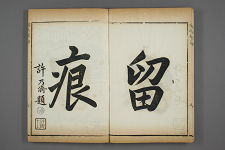 留
痕
許乃濟題